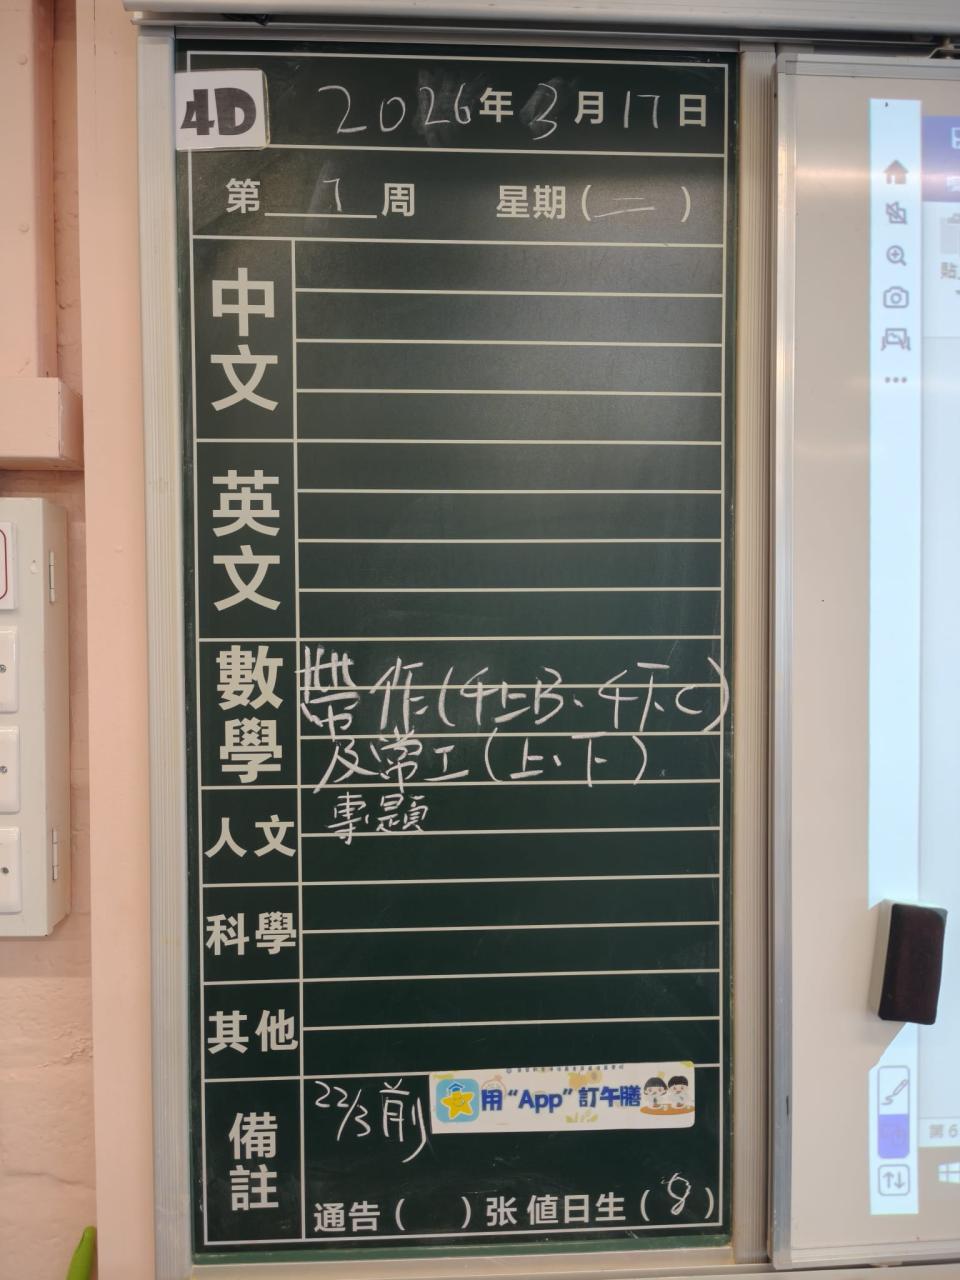 4D
2026年3月17日
第 7 周 星期(二)
中文
英文
數學
帶作(4上B、4下C)
及常工(上、下)
人文
專題
科學
其他
備註
22/3前
用“App”訂午膳
通告( )张 值日生(8)
貼上
第 6